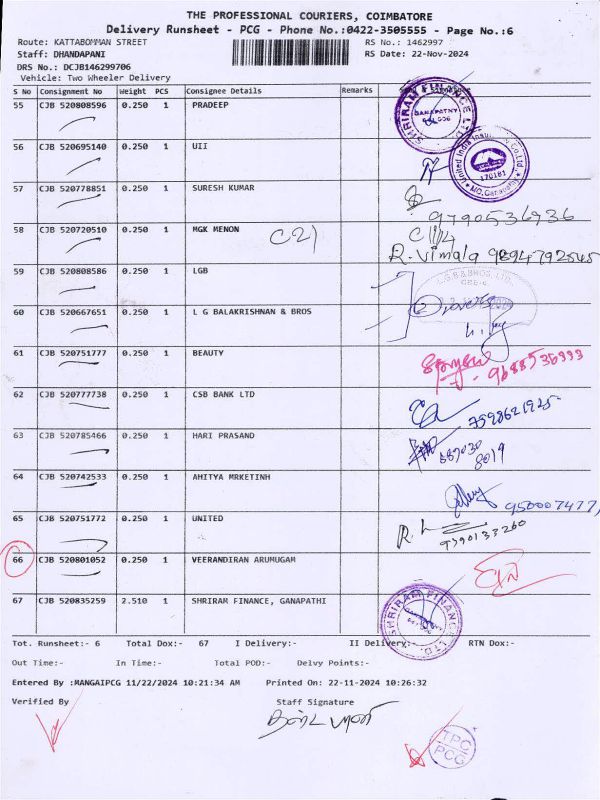 THE PROFESSIONAL COURIERS, COIMBATORE
Delivery Runsheet - PCG - Phone No.:0422-3505555 - Page No.:6
Route: KATTABOMMAN STREET RS No.: 1462997
Staff: DHANDAPANI RS Date: 22-Nov-2024
DRS No.: DCJB146299706
Vehicle: Two Wheeler Delivery
S No Consignment No Weight PCS Consignee Details Remarks
55 CJB 520808596 0.250 1 PRADEEP
SHRIRAM FINANCE LTD. GANAPATHY
56 CJB 520695140 0.250 1 UII
United India Co.Ltd 170181
57 CJB 520778851 0.250 1 SURESH KUMAR
9790536936
58 CJB 520720510 0.250 1 MGK MENON C21
R. Vimala 9894792545
59 CJB 520808586 0.250 1 LGB
L.G.B & BROS. LTD.
60 CJB 520667651 0.250 1 L G BALAKRISHNAN & BROS
61 CJB 520751777 0.250 1 BEAUTY
9688536333
62 CJB 520777738 0.250 1 CSB BANK LTD
7598621925
63 CJB 520785466 0.250 1 HARI PRASAND
64 CJB 520742533 0.250 1 AHITYA MRKETINH
65 CJB 520751772 0.250 1 UNITED
9790133260
66 CJB 520801052 0.250 1 VEERANDIRAN ARUMUGAM
67 CJB 520835259 2.510 1 SHRIRAM FINANCE, GANAPATHI
SHRIRAM FINANCE LTD.
Tot. Runsheet:- 6 Total Dox:- 67 I Delivery:- II Delivery:- RTN Dox:-
Out Time:- In Time:- Total POD:- Delvy Points:-
Entered By :MANGAIPCG 11/22/2024 10:21:34 AM Printed On: 22-11-2024 10:26:32
Verified By Staff Signature
TPC
PCG